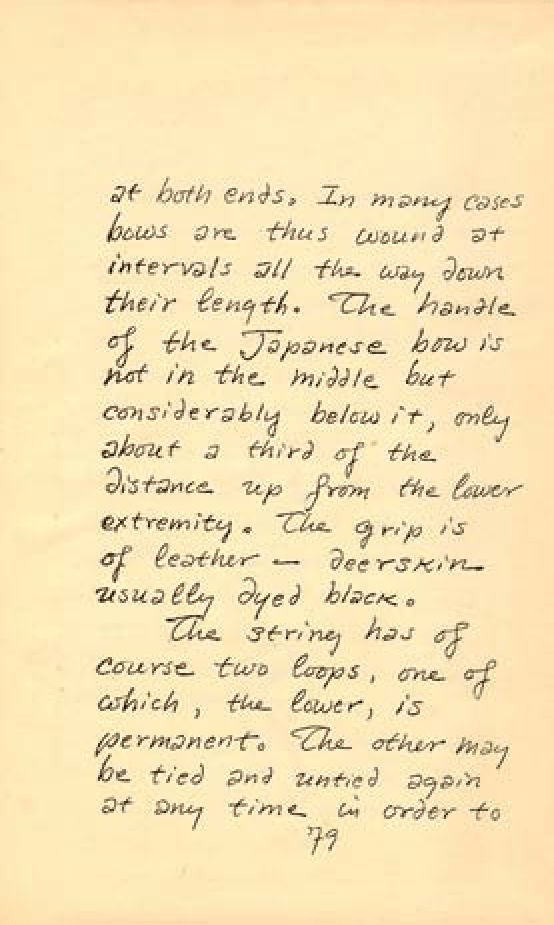 at both ends. In many cases
bows are thus wound at
intervals all the way down
their length. The handle
of the Japanese bow is
not in the middle but
considerably below it, only
about a third of the
distance up from the lower
extremity. The grip is
of leather — deerskin
usually dyed black.
The string has of
course two loops, one of
which, the lower, is
permanent. The other may
be tied and untied again
at any time in order to
79